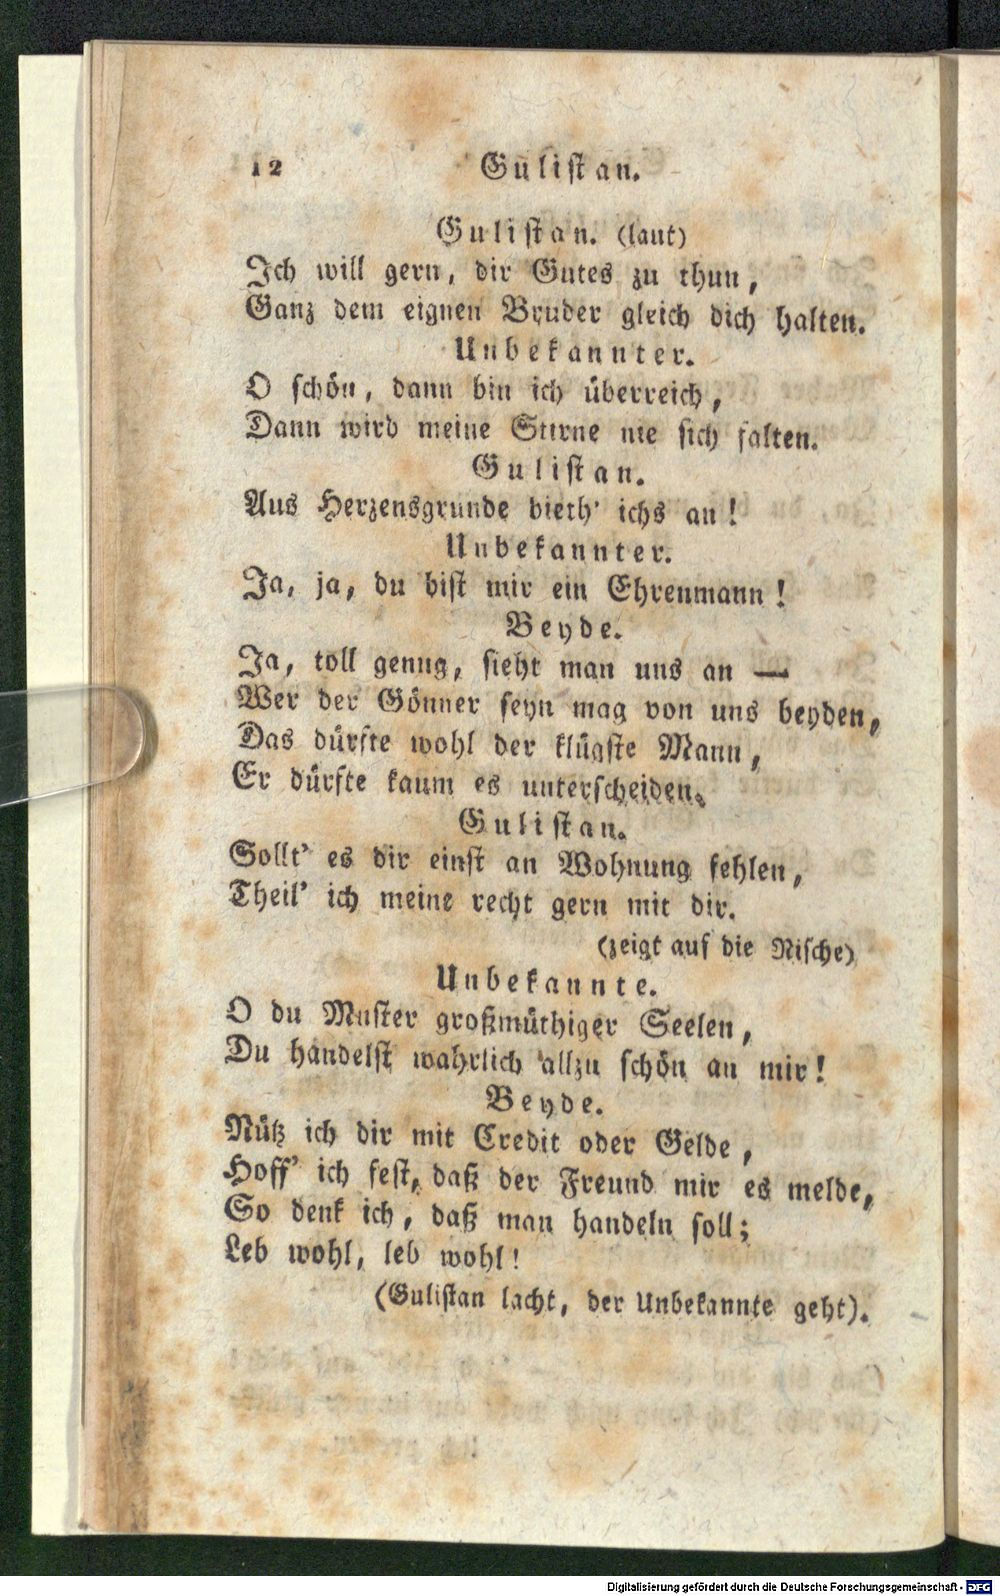 12 Gulistan.
Gulistan. (laut)
Ich will gern, dir Gutes zu thun,
Ganz dem eignen Bruder gleich dich halten.
Unbekannter.
O schön, dann bin ich überreich,
Dann wird meine Stirne nie sich falten.
Gulistan.
Aus Herzensgrunde bieth' ichs an!
Unbekannter.
Ja, ja, du bist mir ein Ehrenmann!
Beyde.
Ja, toll genug, sieht man uns an —
Wer der Gönner seyn mag von uns beyden,
Das dürfte wohl der klügste Mann,
Er dürfte kaum es unterscheiden.
Gulistan.
Sollt' es dir einst an Wohnung fehlen,
Theil' ich meine recht gern mit dir.
(zeigt auf die Nische)
Unbekannte.
O du Muster großmüthiger Seelen,
Du handelst wahrlich allzu schön an mir!
Beyde.
Nütz ich dir mit Credit oder Gelde,
Hoff' ich fest, daß der Freund mir es melde,
So denk ich, daß man handeln soll;
Leb wohl, leb wohl!
(Gulistan lacht, der Unbekannte geht).
Digitalisierung gefördert durch die Deutsche Forschungsgemeinschaft - DFG